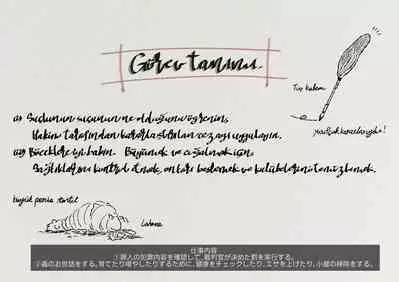 Görev tanımı
Tüy kalem
(1) Suçlunun suçunun ne olduğunu öğrenin,
Hakim tarafından kararlaştırılan cezayı uygulayın.
(2) Böceklere iyi bakın. Büyümek ve çoğalmak için,
Sağlıklarını kontrol etmek, onları beslemek ve kulübelerini temizlemek.
büyük tırtıl
Lahana
仕事内容
①罪人の犯罪内容を確認して、裁判官が決めた罰を実行する。
②蟲のお世話をする。育てたり増やしたりするために、健康をチェックしたり、エサを上げたり、小屋の掃除をする。